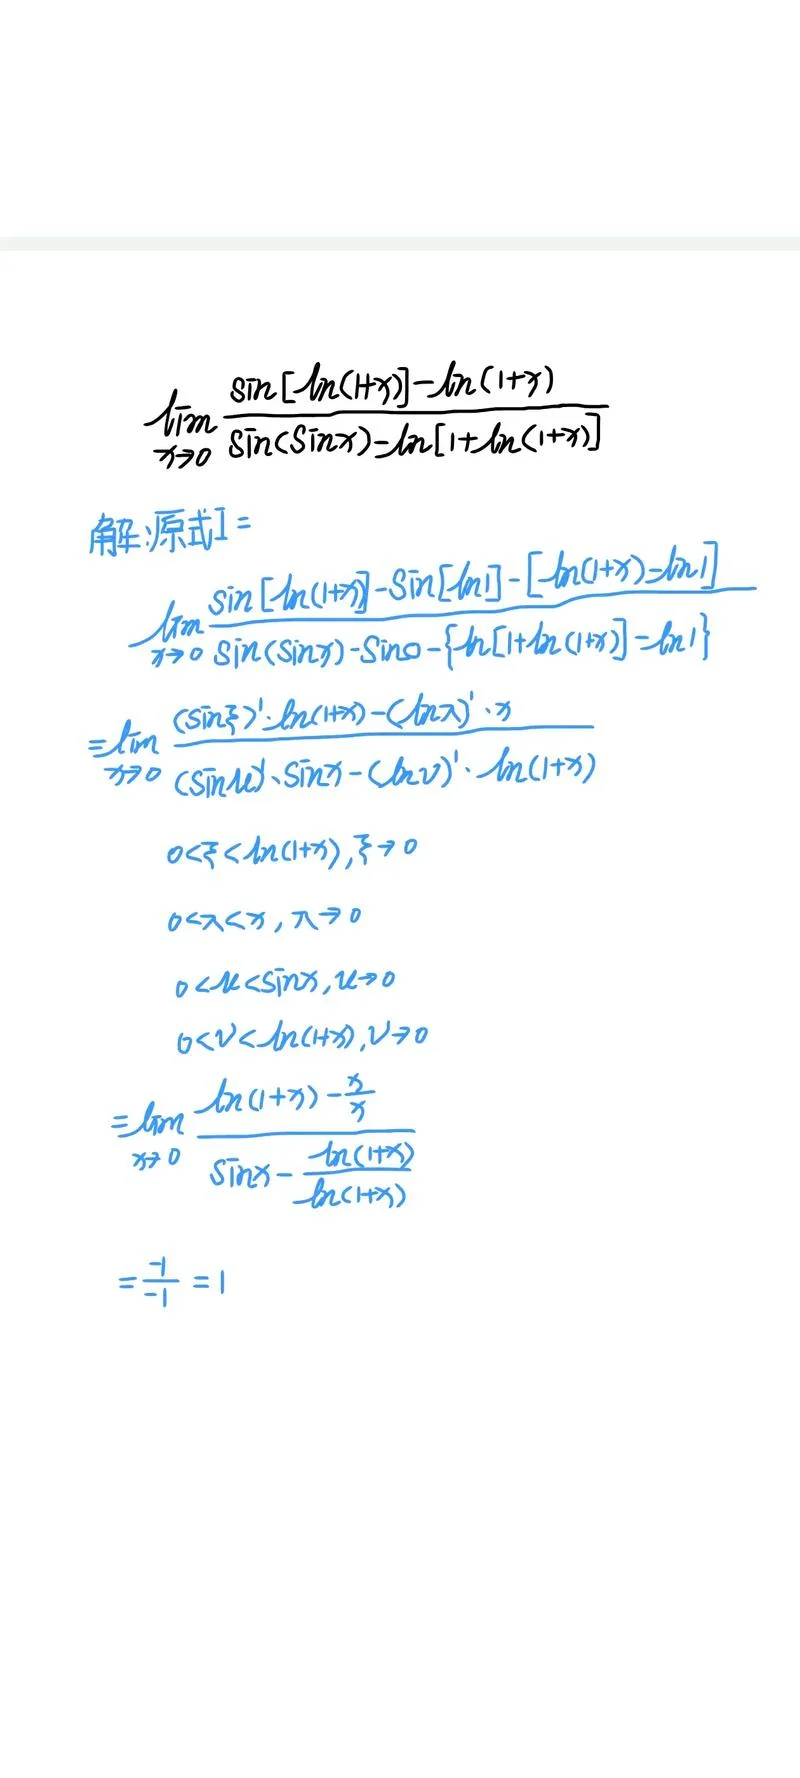 lim x→0 (sin[ln(1+x)]-ln(1+x))/(sin(sinx)-ln[1+ln(1+x)])
解:原式I=
lim x→0 (sin[ln(1+x)]-sin[ln1]-[ln(1+x)-ln1])/(sin(sinx)-sin0-{ln[1+ln(1+x)]-ln1})
=lim x→0 ((sinξ)'·ln(1+x)-(lnλ)'·x)/((sinu)'·sinx-(lnν)'·ln(1+x))
0<ξ<ln(1+x),ξ→0
0<λ<x,λ→0
0<u<sinx,u→0
0<ν<ln(1+x),ν→0
=lim x→0 (ln(1+x)-x/x)/(sinx-ln(1+x)/ln(1+x))
=-1/-1=1